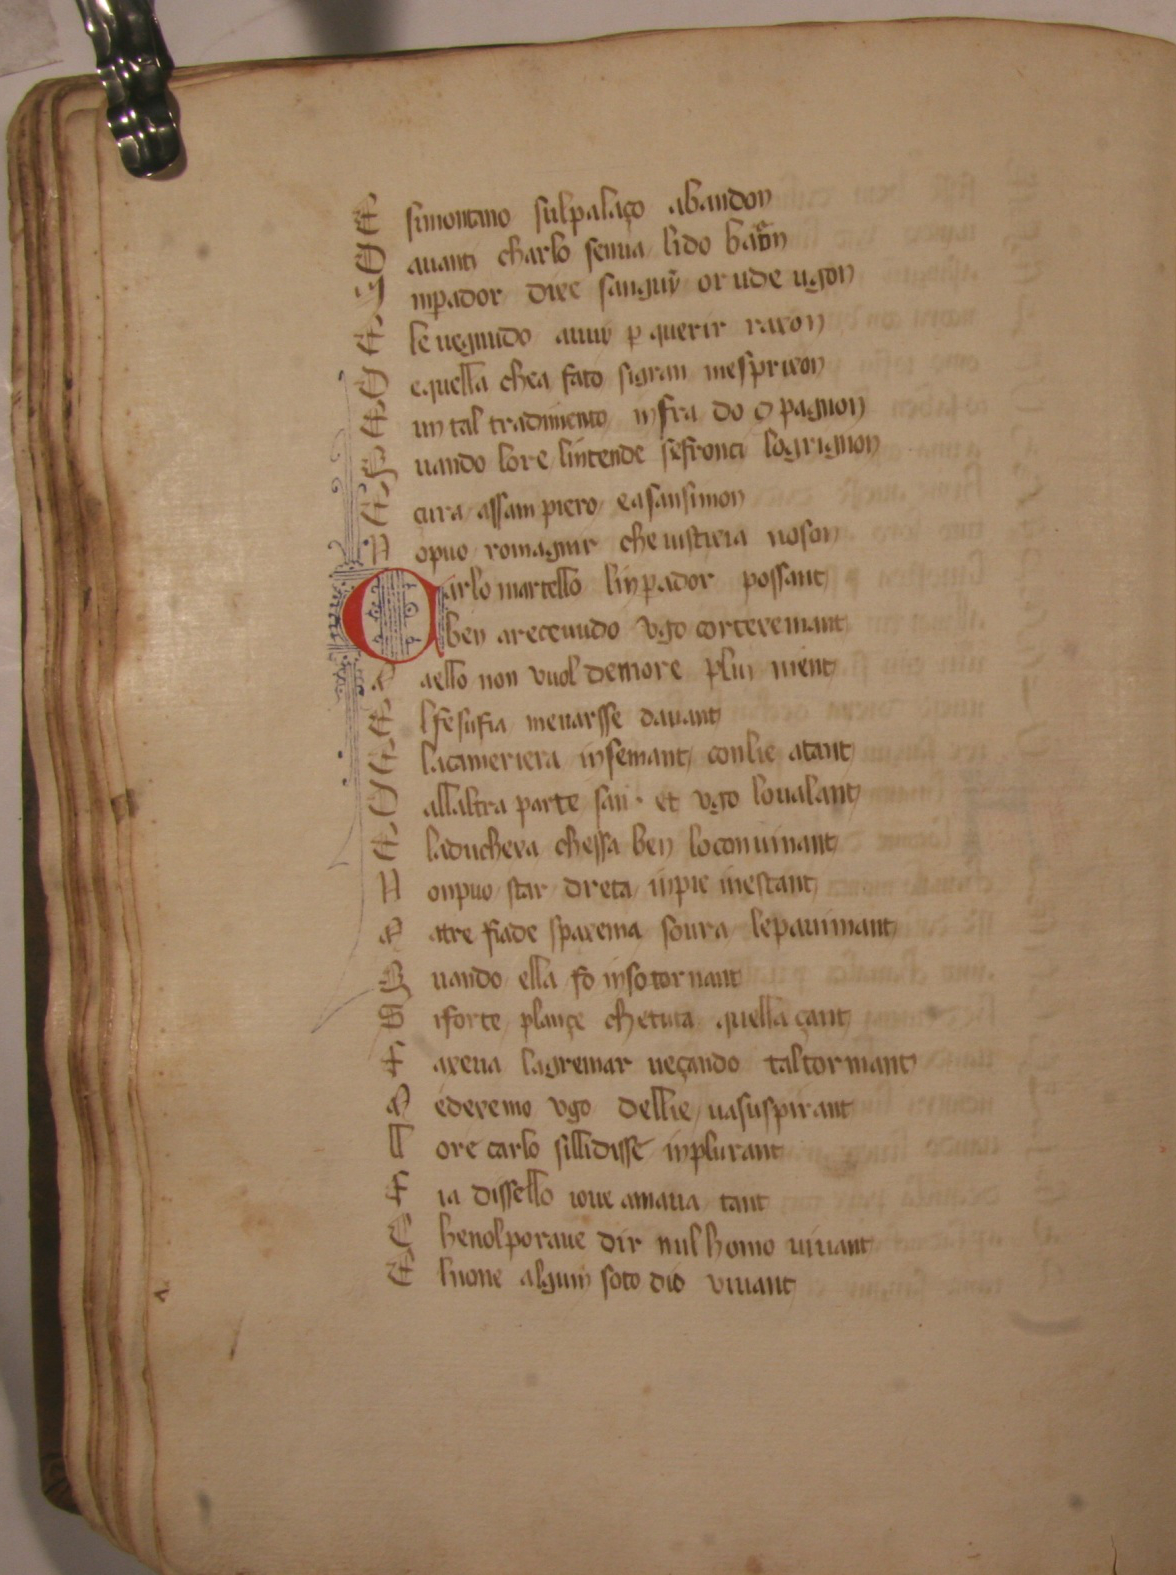 E simontano sul palaço abandon
D auanti charlo senua li do baron
I npador dixe sanguin or ude ugon
E le uegnudo auui p querir raxon
D e quella chea fato sigran mesprixon
E un tal tradimento infra do 9pagnon
Q uando lore lintende se fronci lo grignon
E cura assam piero e a sansimon
N o puo romagnir che uisticia no son
Carlo martello linpador possant
A ben a receuudo vgo cortexemant
P aello non vuol demore plui nient
E l fe sufia menarsse dauant
E la cameriera insemant con lie atant
D all altra parte san · et vgo lo ualant
E la duchexa chessa ben lo conuinant
N on puo star dreta in pie in estant
P atre fiade spaxema soura le pauimant
Q uando ella fo in so tornant
S i forte plançe che tuta quella çant
F axeua lagremar ueçando tal tormant
P e dexemo vgo de llie ua suspirant
L ore carlo silli disse in plurant
F ia diss ello ioue amaua tant
C he nol poraue dir nul homo viuant
E l none algun soto dio viuant